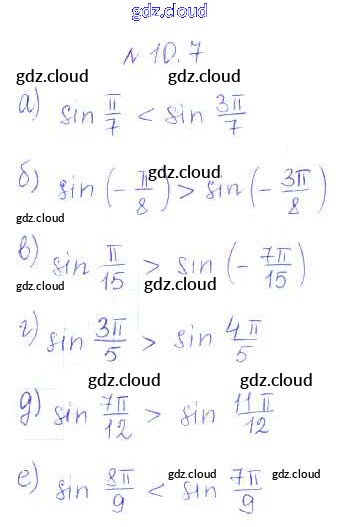 gdz.cloud
№ 10.7
gdz.cloud gdz.cloud
а) sin π/7 < sin 3π/7
gdz.cloud gdz.cloud
gdz.cloud
б) sin (- π/8) > sin (- 3π/8)
gdz.cloud gdz.cloud
в) sin π/15 > sin (- 7π/15)
gdz.cloud gdz.cloud
г) sin 3π/5 > sin 4π/5
gdz.cloud gdz.cloud
д) sin 7π/12 > sin 11π/12
gdz.cloud
е) sin 8π/9 < sin 7π/9
gdz.cloud gdz.cloud gdz.cloud